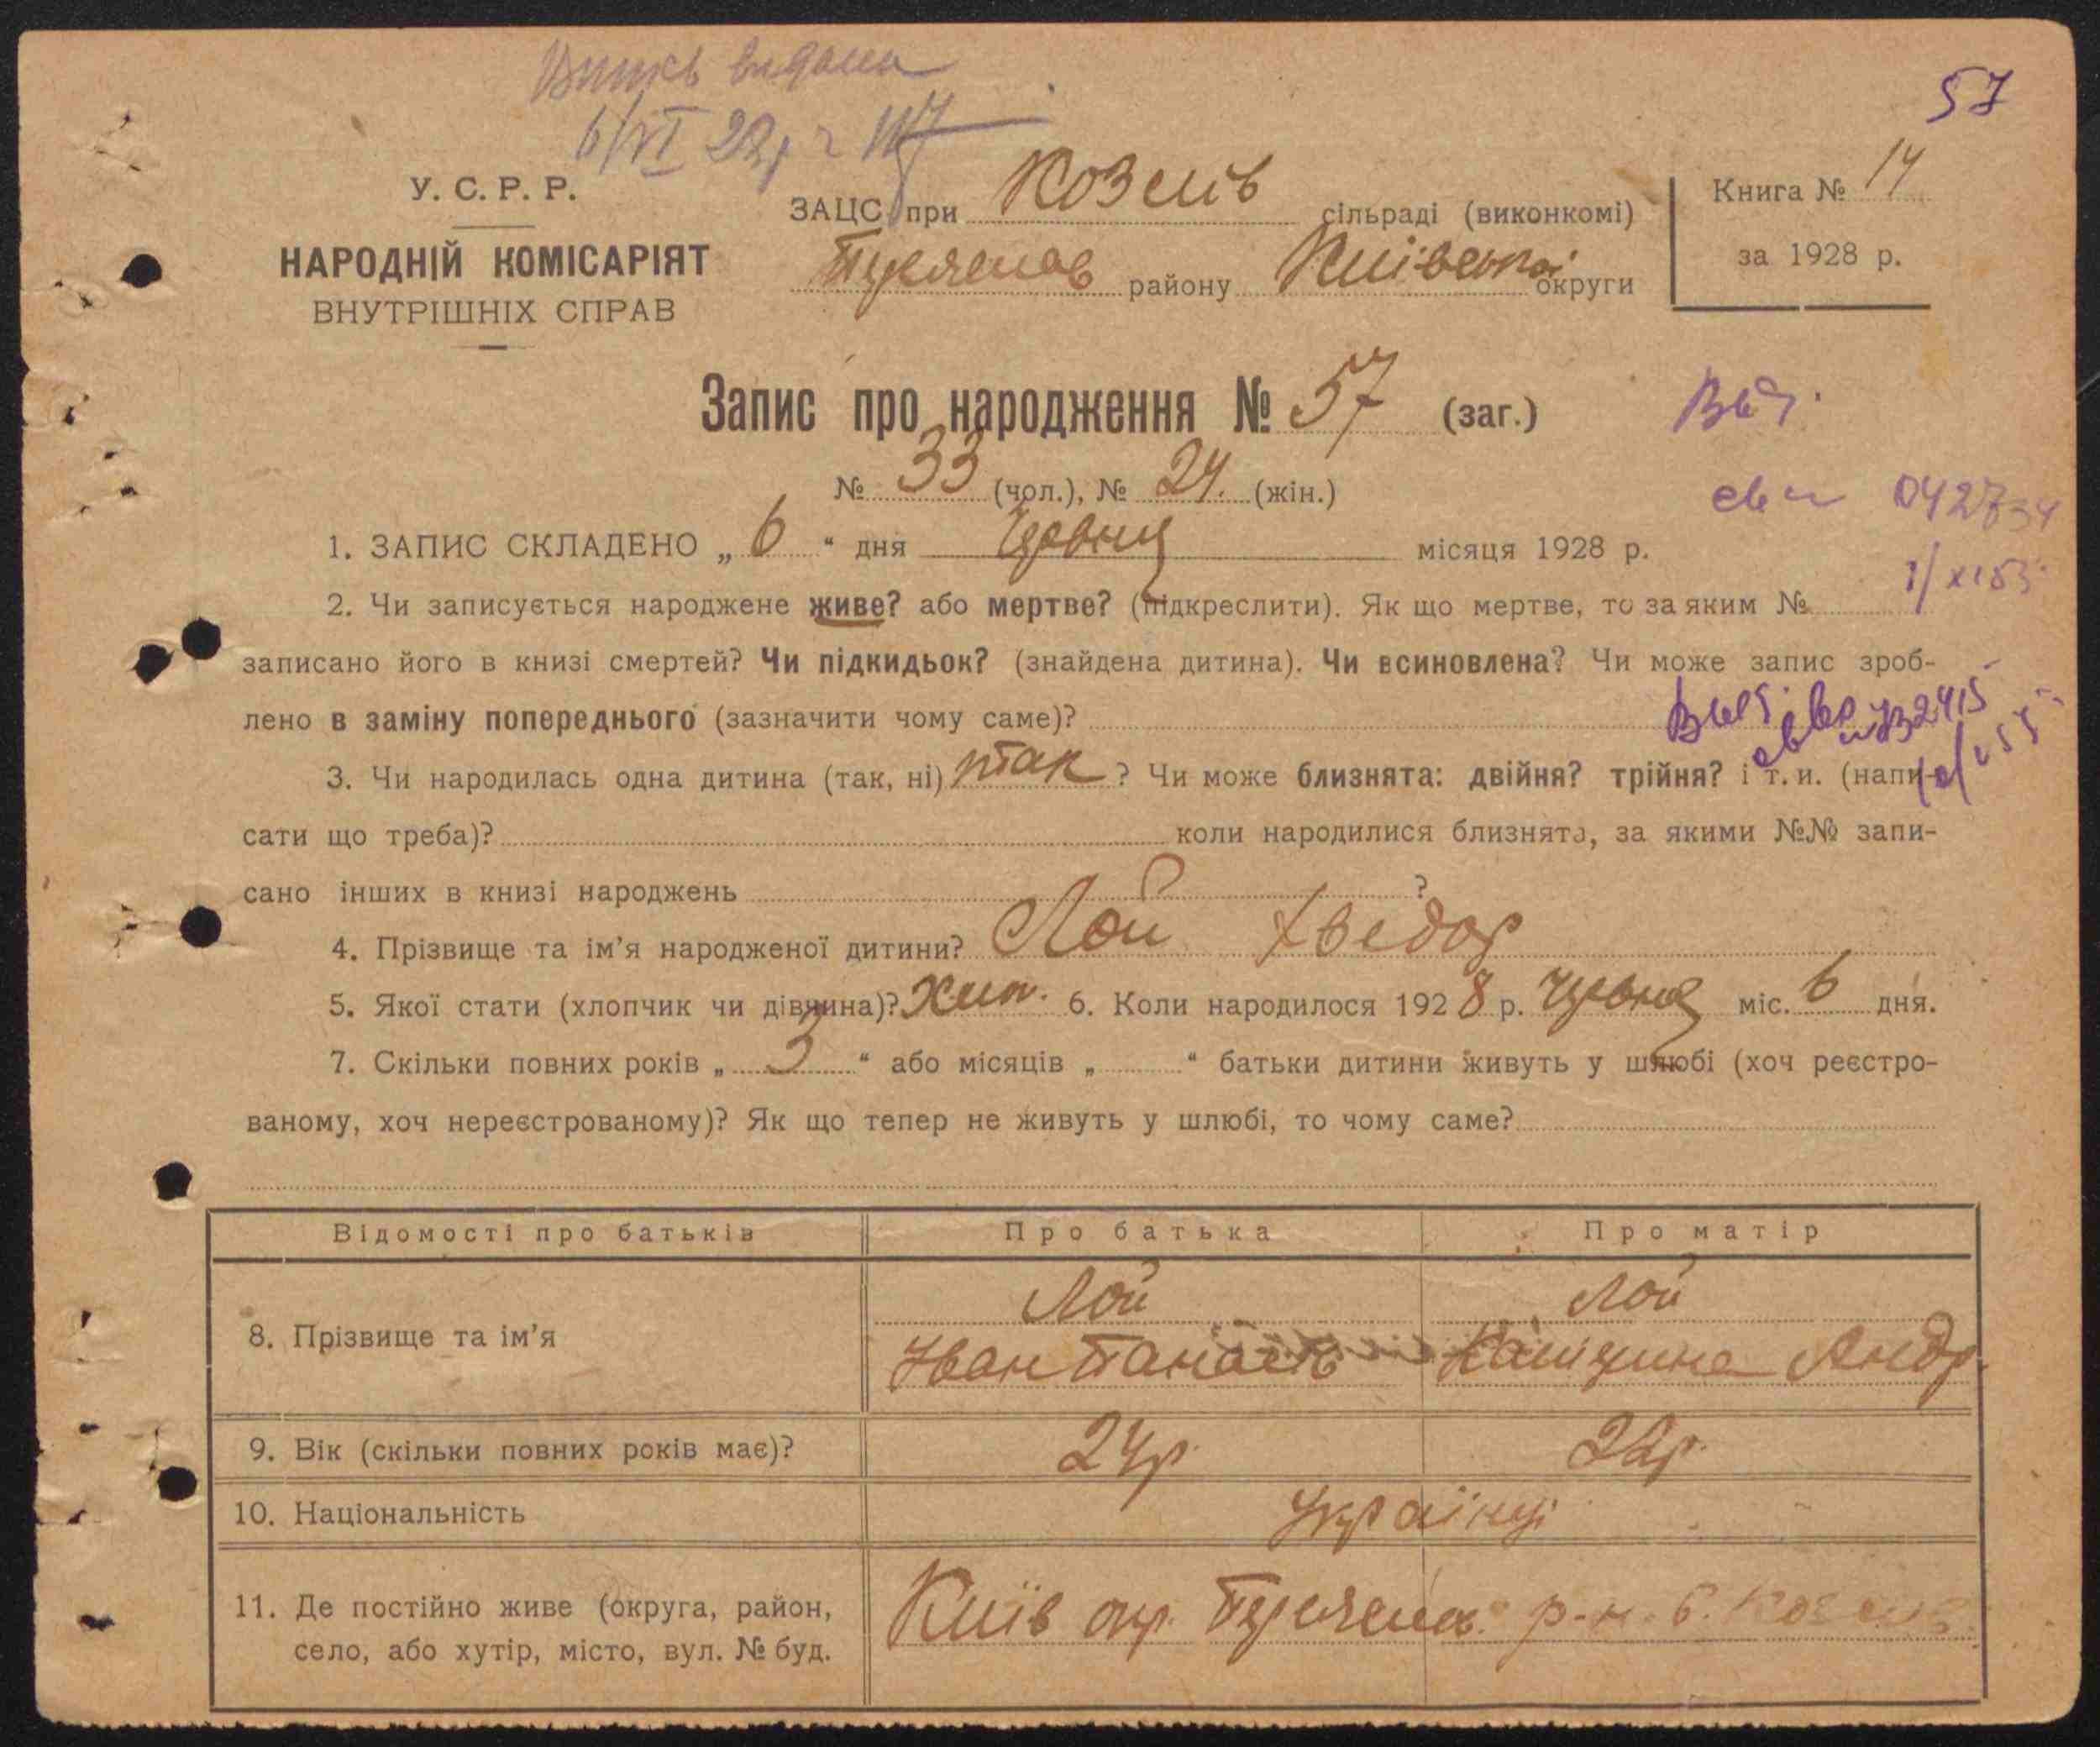 57
У. С. Р. Р.
НАРОДНІЙ КОМІСАРІЯТ
ВНУТРІШНІХ СПРАВ
ЗАЦС при Козелів сільраді (виконкомі)
району Київської округи
Книга № 14
за 1928 р.
Запис про народження № 57 (заг.)
№ 33 (чол.), № 24. (жін.)
1. ЗАПИС СКЛАДЕНО „ 6 “ дня Червня місяця 1928 р.
2. Чи записується народжене живе? або мертве? (підкреслити). Як що мертве, то за яким №
записано його в книзі смертей? Чи підкидьок? (знайдена дитина). Чи всиновлена? Чи може запис зроб-
лено в заміну попереднього (зазначити чому саме)?
3. Чи народилась одна дитина (так, ні) так ? Чи може близнята: двійня? трійня? і т. и. (напи-
сати що треба)? коли народилися близнята, за якими №№ запи-
сано інших в книзі народжень ?
4. Прізвище та ім'я народженої дитини? Лой Хведор
5. Якої стати (хлопчик чи дівчина)? Хлоп. 6. Коли народилося 1928 р. Червня міс. 6 дня.
7. Скільки повних років „ 3 “ або місяців „ “ батьки дитини живуть у шлюбі (хоч реєстро-
ваному, хоч нереєстрованому)? Як що тепер не живуть у шлюбі, то чому саме?
Відомості про батьків Про батька Про матір
8. Прізвище та ім'я
Лой Лой
Іван Панасів Андр.
9. Вік (скільки повних років має)? 24р. 22р.
10. Національність Українці
11. Де постійно живе (округа, район,
село, або хутір, місто, вул. № буд.
Київ окр. р-н. с.